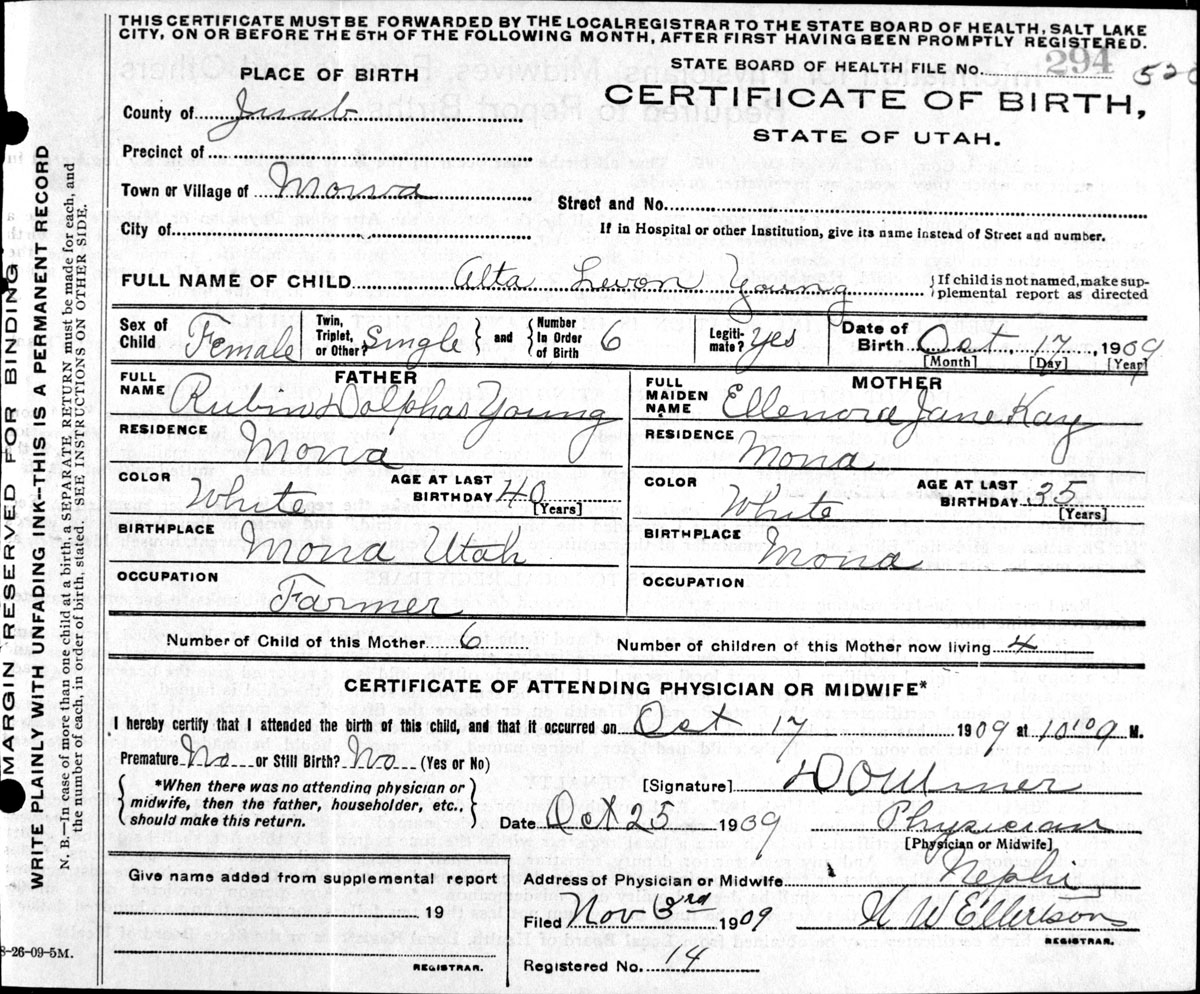 THIS CERTIFICATE MUST BE FORWARDED BY THE LOCAL REGISTRAR TO THE STATE BOARD OF HEALTH, SALT LAKE
CITY, ON OR BEFORE THE 5TH OF THE FOLLOWING MONTH, AFTER FIRST HAVING BEEN PROMPTLY REGISTERED.
PLACE OF BIRTH
STATE BOARD OF HEALTH FILE No. 294 520
County of Juab
CERTIFICATE OF BIRTH,
STATE OF UTAH.
Precinct of
Town or Village of Mona
Street and No.
City of
If in Hospital or other Institution, give its name instead of Street and number.
FULL NAME OF CHILD Alta Levon Young } If child is not named, make sup-
plemental report as directed
Sex of Child Female
Twin, Triplet, or Other? Single } and { Number In Order of Birth 6
Legiti-mate? Yes
Date of Birth Oct. 17, 1909
[Month] [Day] [Year]
FATHER
FULL NAME Dolphas Young
RESIDENCE Mona
COLOR White AGE AT LAST BIRTHDAY 40
[Years]
BIRTHPLACE Mona Utah
OCCUPATION Farmer
MOTHER
FULL MAIDEN NAME Ellenora Jane Kay
RESIDENCE Mona
COLOR White AGE AT LAST BIRTHDAY 35
[Years]
BIRTHPLACE Mona
OCCUPATION
Number of Child of this Mother 6 Number of children of this Mother now living 4
CERTIFICATE OF ATTENDING PHYSICIAN OR MIDWIFE*
I hereby certify that I attended the birth of this child, and that it occurred on Oct 17 1909 at M.
Premature No or Still Birth? No (Yes or No)
{ *When there was no attending physician or
midwife, then the father, householder, etc.,
should make this return. }
[Signature]
Date Oct 25 1909 Physician
[Physician or Midwife]
Give name added from supplemental report
19
REGISTRAR.
Address of Physician or Midwife Nephi
Filed Nov 3rd 1909 W Ellertson
REGISTRAR.
Registered No. 14
8-26-09-5M.
MARGIN RESERVED FOR BINDING
WRITE PLAINLY WITH UNFADING INK--THIS IS A PERMANENT RECORD
N. B.—In case of more than one child at a birth, a SEPARATE RETURN must be made for each, and
the number of each, in order of birth, stated. (SEE INSTRUCTIONS ON OTHER SIDE.